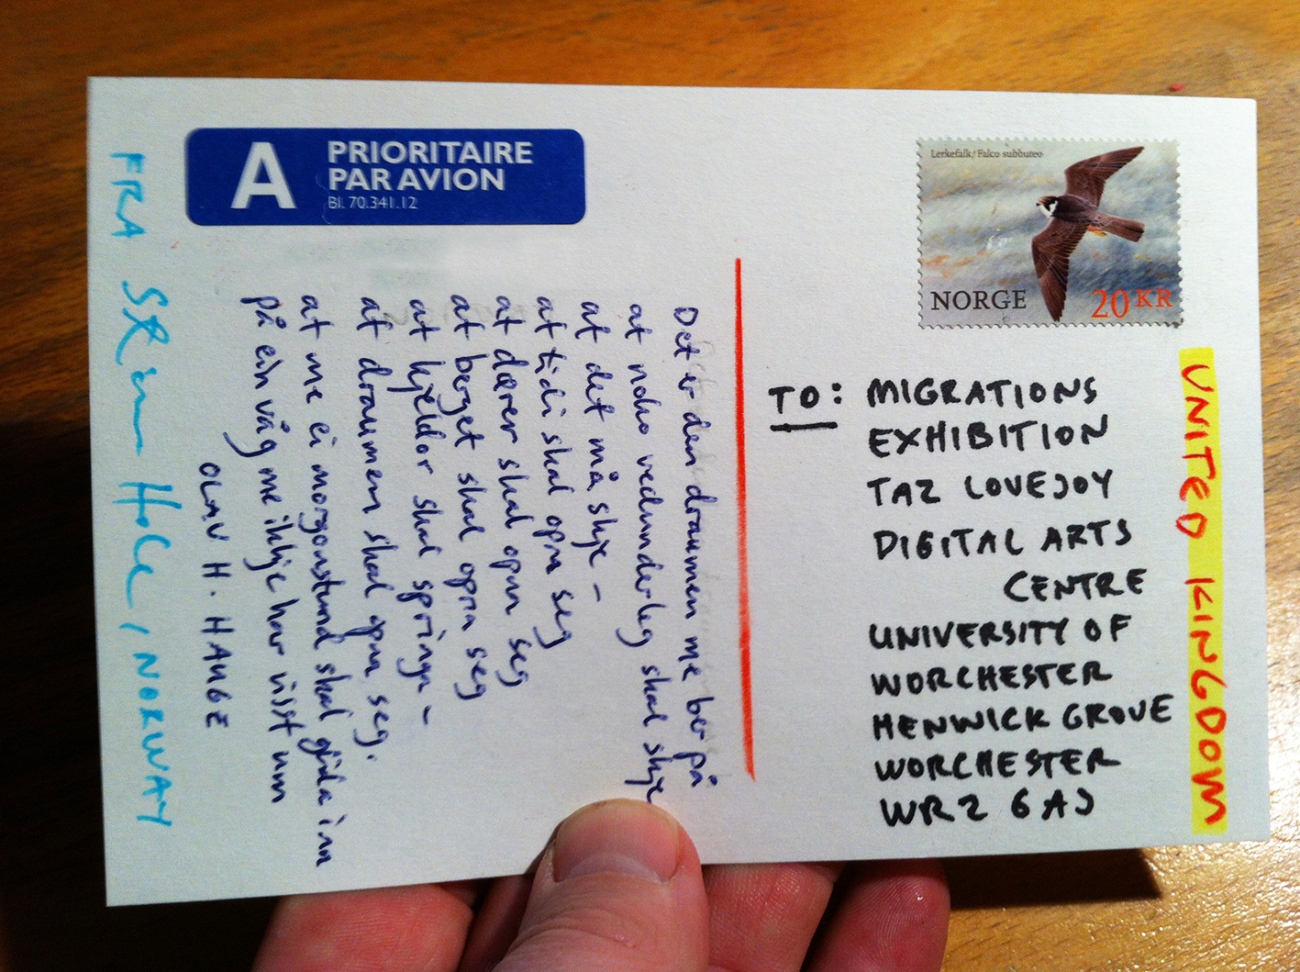 A
PRIORITAIRE
PAR AVION
Bl. 70.341.12
Lerkefalk/Falco subbuteo
NORGE
20 KR
TO: MIGRATIONS
EXHIBITION
TAZ LOVEJOY
DIGITAL ARTS
CENTRE
UNIVERSITY OF
WORCHESTER
HENWICK GROVE
WORCHESTER
WR2 6AJ
UNITED KINGDOM
Det er den draumen me ber på
at noko vedunderleg skal skje
at det må skje –
at tidi skal opna seg
at dører skal opna seg
at berget skal opna seg
at kjeldor skal springa –
at draumen skal opna seg.
at me ei morgonstund skal glida inn
på ein våg me ikkje har visst um
OLAV H. HAUGE
FRA Hole, NORWAY